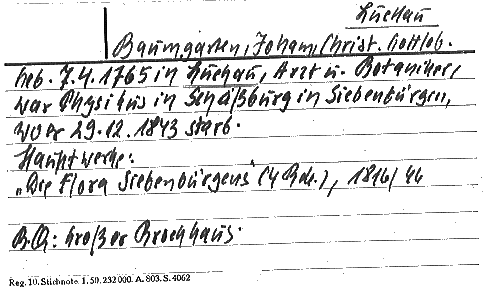 Luckau
Baumgarten, Johann, Christ. Gottlob.
Geb. 7.4.1765 in Luckau, Arzt u. Botaniker,
war Physikus in Schäßburg in Siebenbürgen,
wo er 29.12.1843 starb.
Hauptwerke:
„Die Flora Siebenbürgens" (4 Bde.), 1816/46
B.Q.: Großer Brockhaus.
Reg. 10. Stichnote. 1. 50. 232000. A. 803. S. 4062